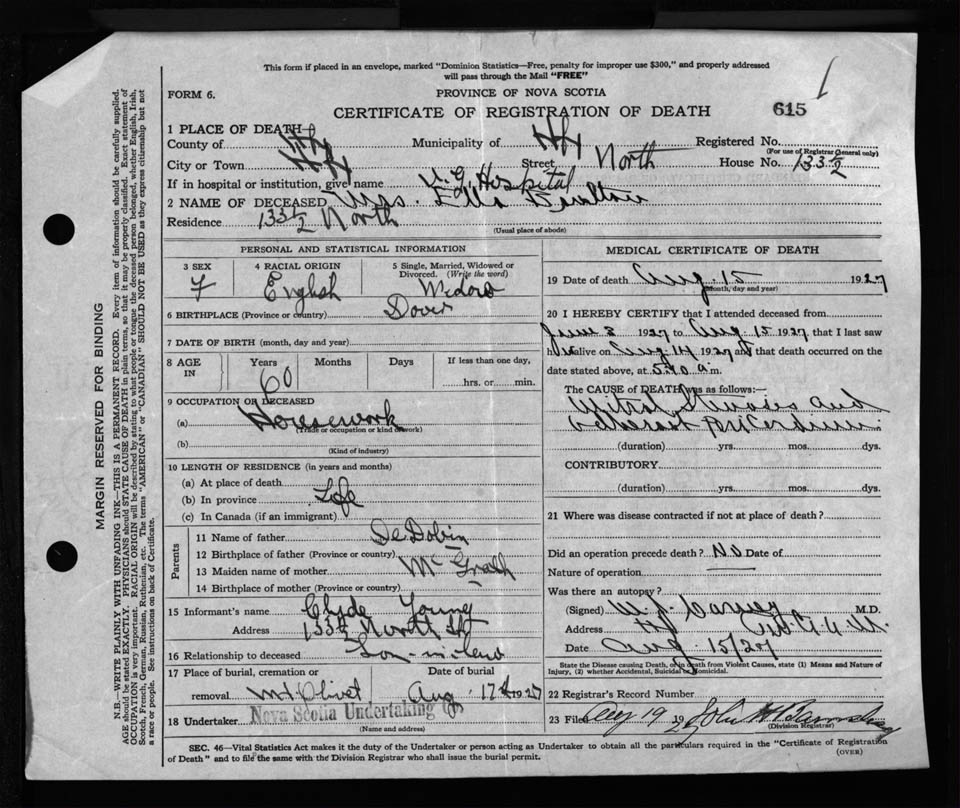 This form if placed in an envelope, marked "Dominion Statistics—Free, penalty for improper use $300," and properly addressed
will pass through the Mail "FREE"
FORM 6.
PROVINCE OF NOVA SCOTIA
CERTIFICATE OF REGISTRATION OF DEATH
615
1 PLACE OF DEATH—
County of Hfx Municipality of Hfx Registered No.
(For use of Registrar General only)
City or Town Hfx Street North House No. 133 1/2
If in hospital or institution, give name V. G. Hospital
2 NAME OF DECEASED Mrs. Ella
Residence 133 1/2 North
(Usual place of abode)
PERSONAL AND STATISTICAL INFORMATION
3 SEX F
4 RACIAL ORIGIN English
5 Single, Married, Widowed or Divorced. (Write the word) Widow
6 BIRTHPLACE (Province or country) Dover
7 DATE OF BIRTH (month, day and year)
8 AGE IN Years 60 Months Days If less than one day, hrs. or min.
9 OCCUPATION OR DECEASED
(a) Housework
(Trade or occupation or kind of work)
(b)
(Kind of industry)
10 LENGTH OF RESIDENCE (in years and months)
(a) At place of death
(b) In province Life
(c) In Canada (if an immigrant)
Parents
11 Name of father DeDobin
12 Birthplace of father (Province or country)
13 Maiden name of mother McGrath
14 Birthplace of mother (Province or country)
15 Informant's name Clyde Young
Address 133 1/2 North St
16 Relationship to deceased Son-in-law
17 Place of burial, cremation or removal Mt. Olivet
Date of burial Aug. 17th 1927
18 Undertaker Nova Scotia Undertaking Co
(Name and address)
MEDICAL CERTIFICATE OF DEATH
19 Date of death Aug. 15 1927
(Month, day and year)
20 I HEREBY CERTIFY that I attended deceased from
June 3 1927 to Aug 15 1927 that I last saw
h alive on Aug. 14 1927 and that death occurred on the
date stated above, at 5.40 a m.
The CAUSE of DEATH was as follows:—
Mitral Stenosis and
(duration) yrs. mos. dys.
CONTRIBUTORY
(duration) yrs. mos. dys.
21 Where was disease contracted if not at place of death?
Did an operation precede death? NO Date of
Nature of operation
Was there an autopsy?
(Signed) M.D.
Address Hfx
Date Aug. 15/27
State the Disease causing Death, or in death from Violent Causes, state (1) Means and Nature of
Injury, (2) whether Accidental, Suicidal or Homicidal.
22 Registrar's Record Number
23 Filed Aug 19 1927 John
(Division Registrar)
SEC. 46—Vital Statistics Act makes it the duty of the Undertaker or person acting as Undertaker to obtain all the particulars required in the "Certificate of Registration
of Death" and to file the same with the Division Registrar who shall issue the burial permit.
(OVER)
MARGIN RESERVED FOR BINDING
N.B.—WRITE PLAINLY WITH UNFADING INK—THIS IS A PERMANENT RECORD. Every item of information should be carefully supplied.
AGE should be stated EXACTLY. PHYSICIANS should STATE CAUSE OF DEATH in plain terms, so that it may be properly classified. Exact statement of
OCCUPATION is very important. RACIAL ORIGIN will be described by stating to what people or tongue the deceased person belonged, whether English, Irish,
Scotch, French, German, Russian, Ruthenian, etc. The terms "AMERICAN" or "CANADIAN" SHOULD NOT BE USED as they express citizenship but not
a race or people. See instructions on back of Certificate.